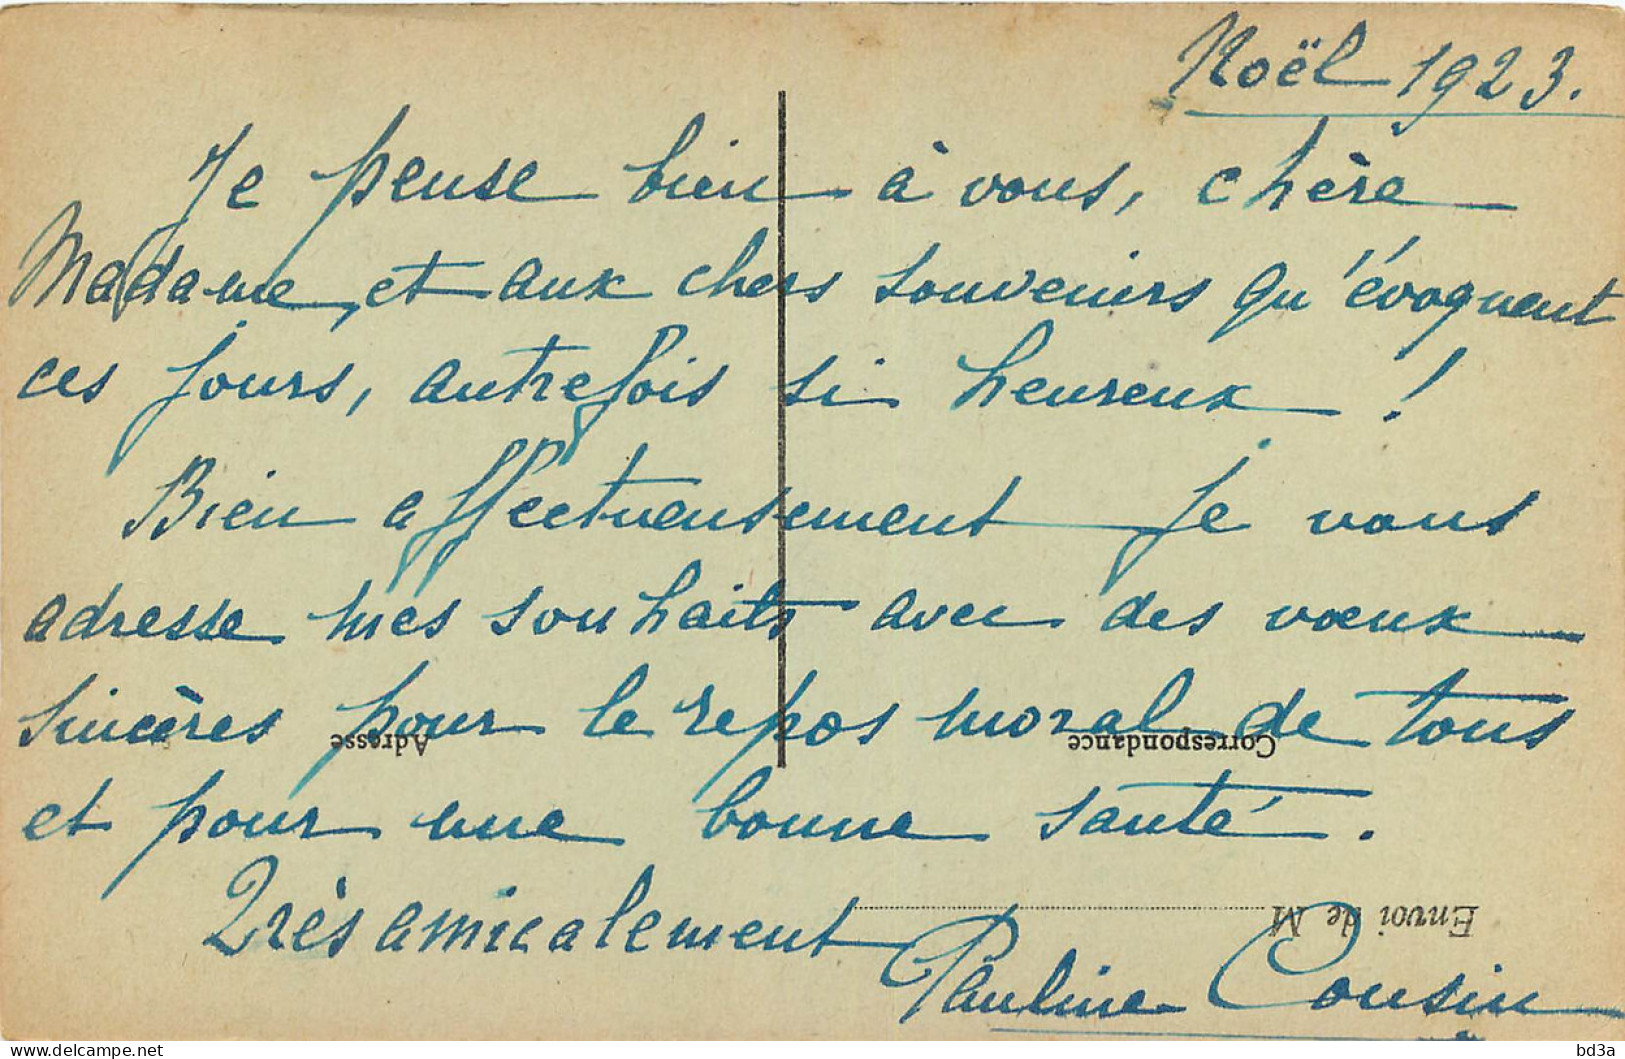 Noël 1923.
Je pense bien à vous, chère
Madame, et aux chers souvenirs qu'évoquent
ces jours, autrefois si heureux !
Bien affectueusement je vous
adresse mes souhaits avec des vœux
sincères pour le repos moral de tous
Adresse
Correspondance
et pour une bonne santé.
Envoi de M
Très amicalement
Pauline Cousin
delcampe.net
bd3a